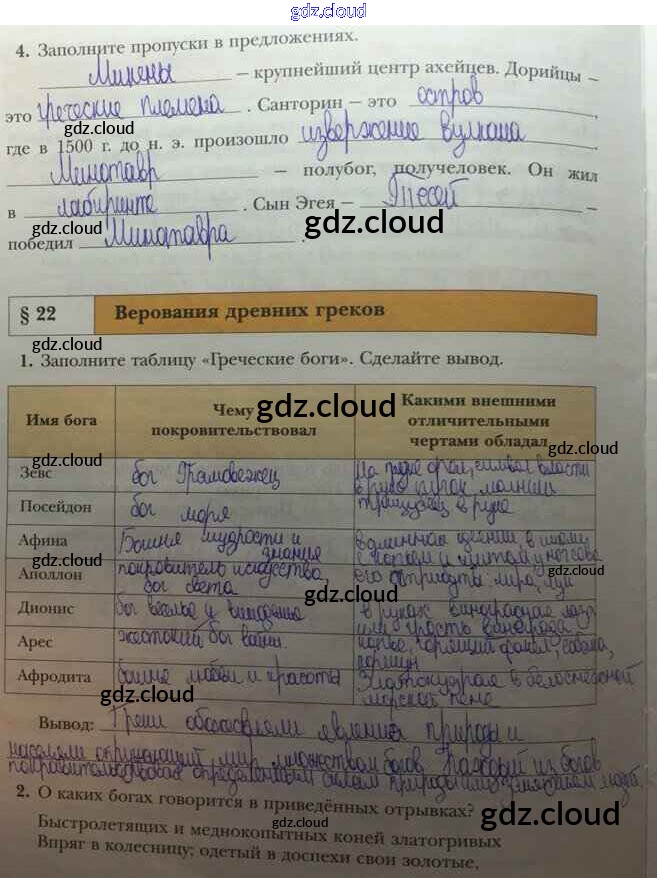 gdz.cloud
4. Заполните пропуски в предложениях.
Микены – крупнейший центр ахейцев. Дорийцы –
это греческие племена. Санторин – это остров,
gdz.cloud
где в 1500 г. до н. э. произошло извержение вулкана.
Минотавр – полубог, получеловек. Он жил
в лабиринте. Сын Эгея – Тесей –
gdz.cloud
победил Минотавра.
gdz.cloud
§ 22 Верования древних греков
gdz.cloud
1. Заполните таблицу «Греческие боги». Сделайте вывод.
Имя бога Чему покровительствовал Какими внешними отличительными чертами обладал
gdz.cloud
gdz.cloud
Зевс бог Громовержец символ власти
gdz.cloud
в руке пучок молний
Посейдон бог моря трезубец в руке
Афина Богиня мудрости и знания в шлеме
с копьем и щитом
gdz.cloud
Аполлон покровитель искусства, бог света его атрибуты лира, лук
gdz.cloud
Дионис бог веселья и виноделия в руках виноградная лоза
или гроздь винограда
Арес жестокий бог войны. копье, горящий факел, собака,
коршун
Афродита богиня любви и красоты Златокудрая в белоснежной
морской пене
gdz.cloud
Вывод: Греки обожествляли явления природы и
населяли окружающий мир множеством богов. Каждый из богов
покровительствовал определенным силам природы или занятиям людей
2. О каких богах говорится в приведённых отрывках?
gdz.cloud
Быстролетящих и меднокопытных коней златогривых
gdz.cloud
Впряг в колесницу; одетый в доспехи свои золотые,